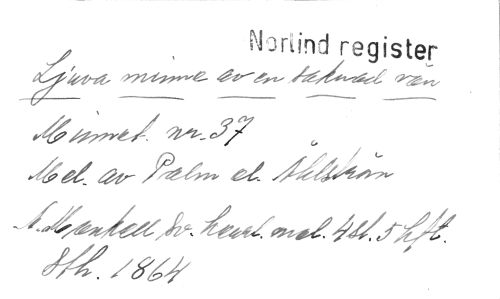 Norlind register
Ljuva minne av en saknad vän
Minnet. nr. 37
Mel. av Palm el. Åhlström
A. Mankell Sv. heml. mel. 4 st. 5 hft.
Sth. 1864